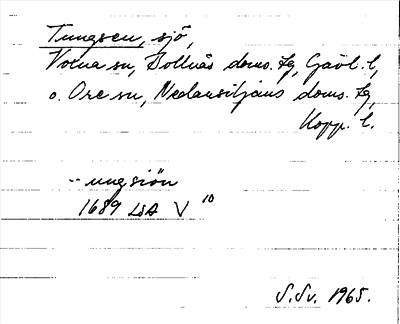 Tungsen, sjö,
Voxna sn, Bollnäs doms. fg, Gävl. l,
o. Ore sn, Nedansiljans doms. fg,
Kopp. l.
-- ungsiön
1689 LSA V 10
S.Sv. 1965.